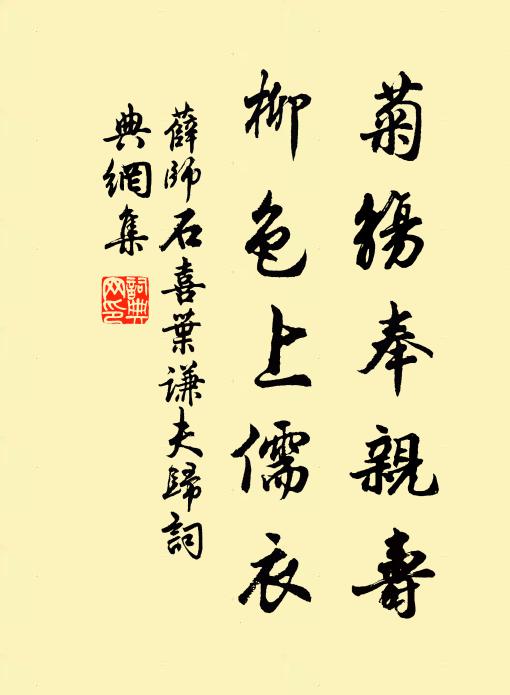 菊觴奉親壽
柳色上儒衣
薛師石喜葉謙夫歸詞
典網集
詞典
网印